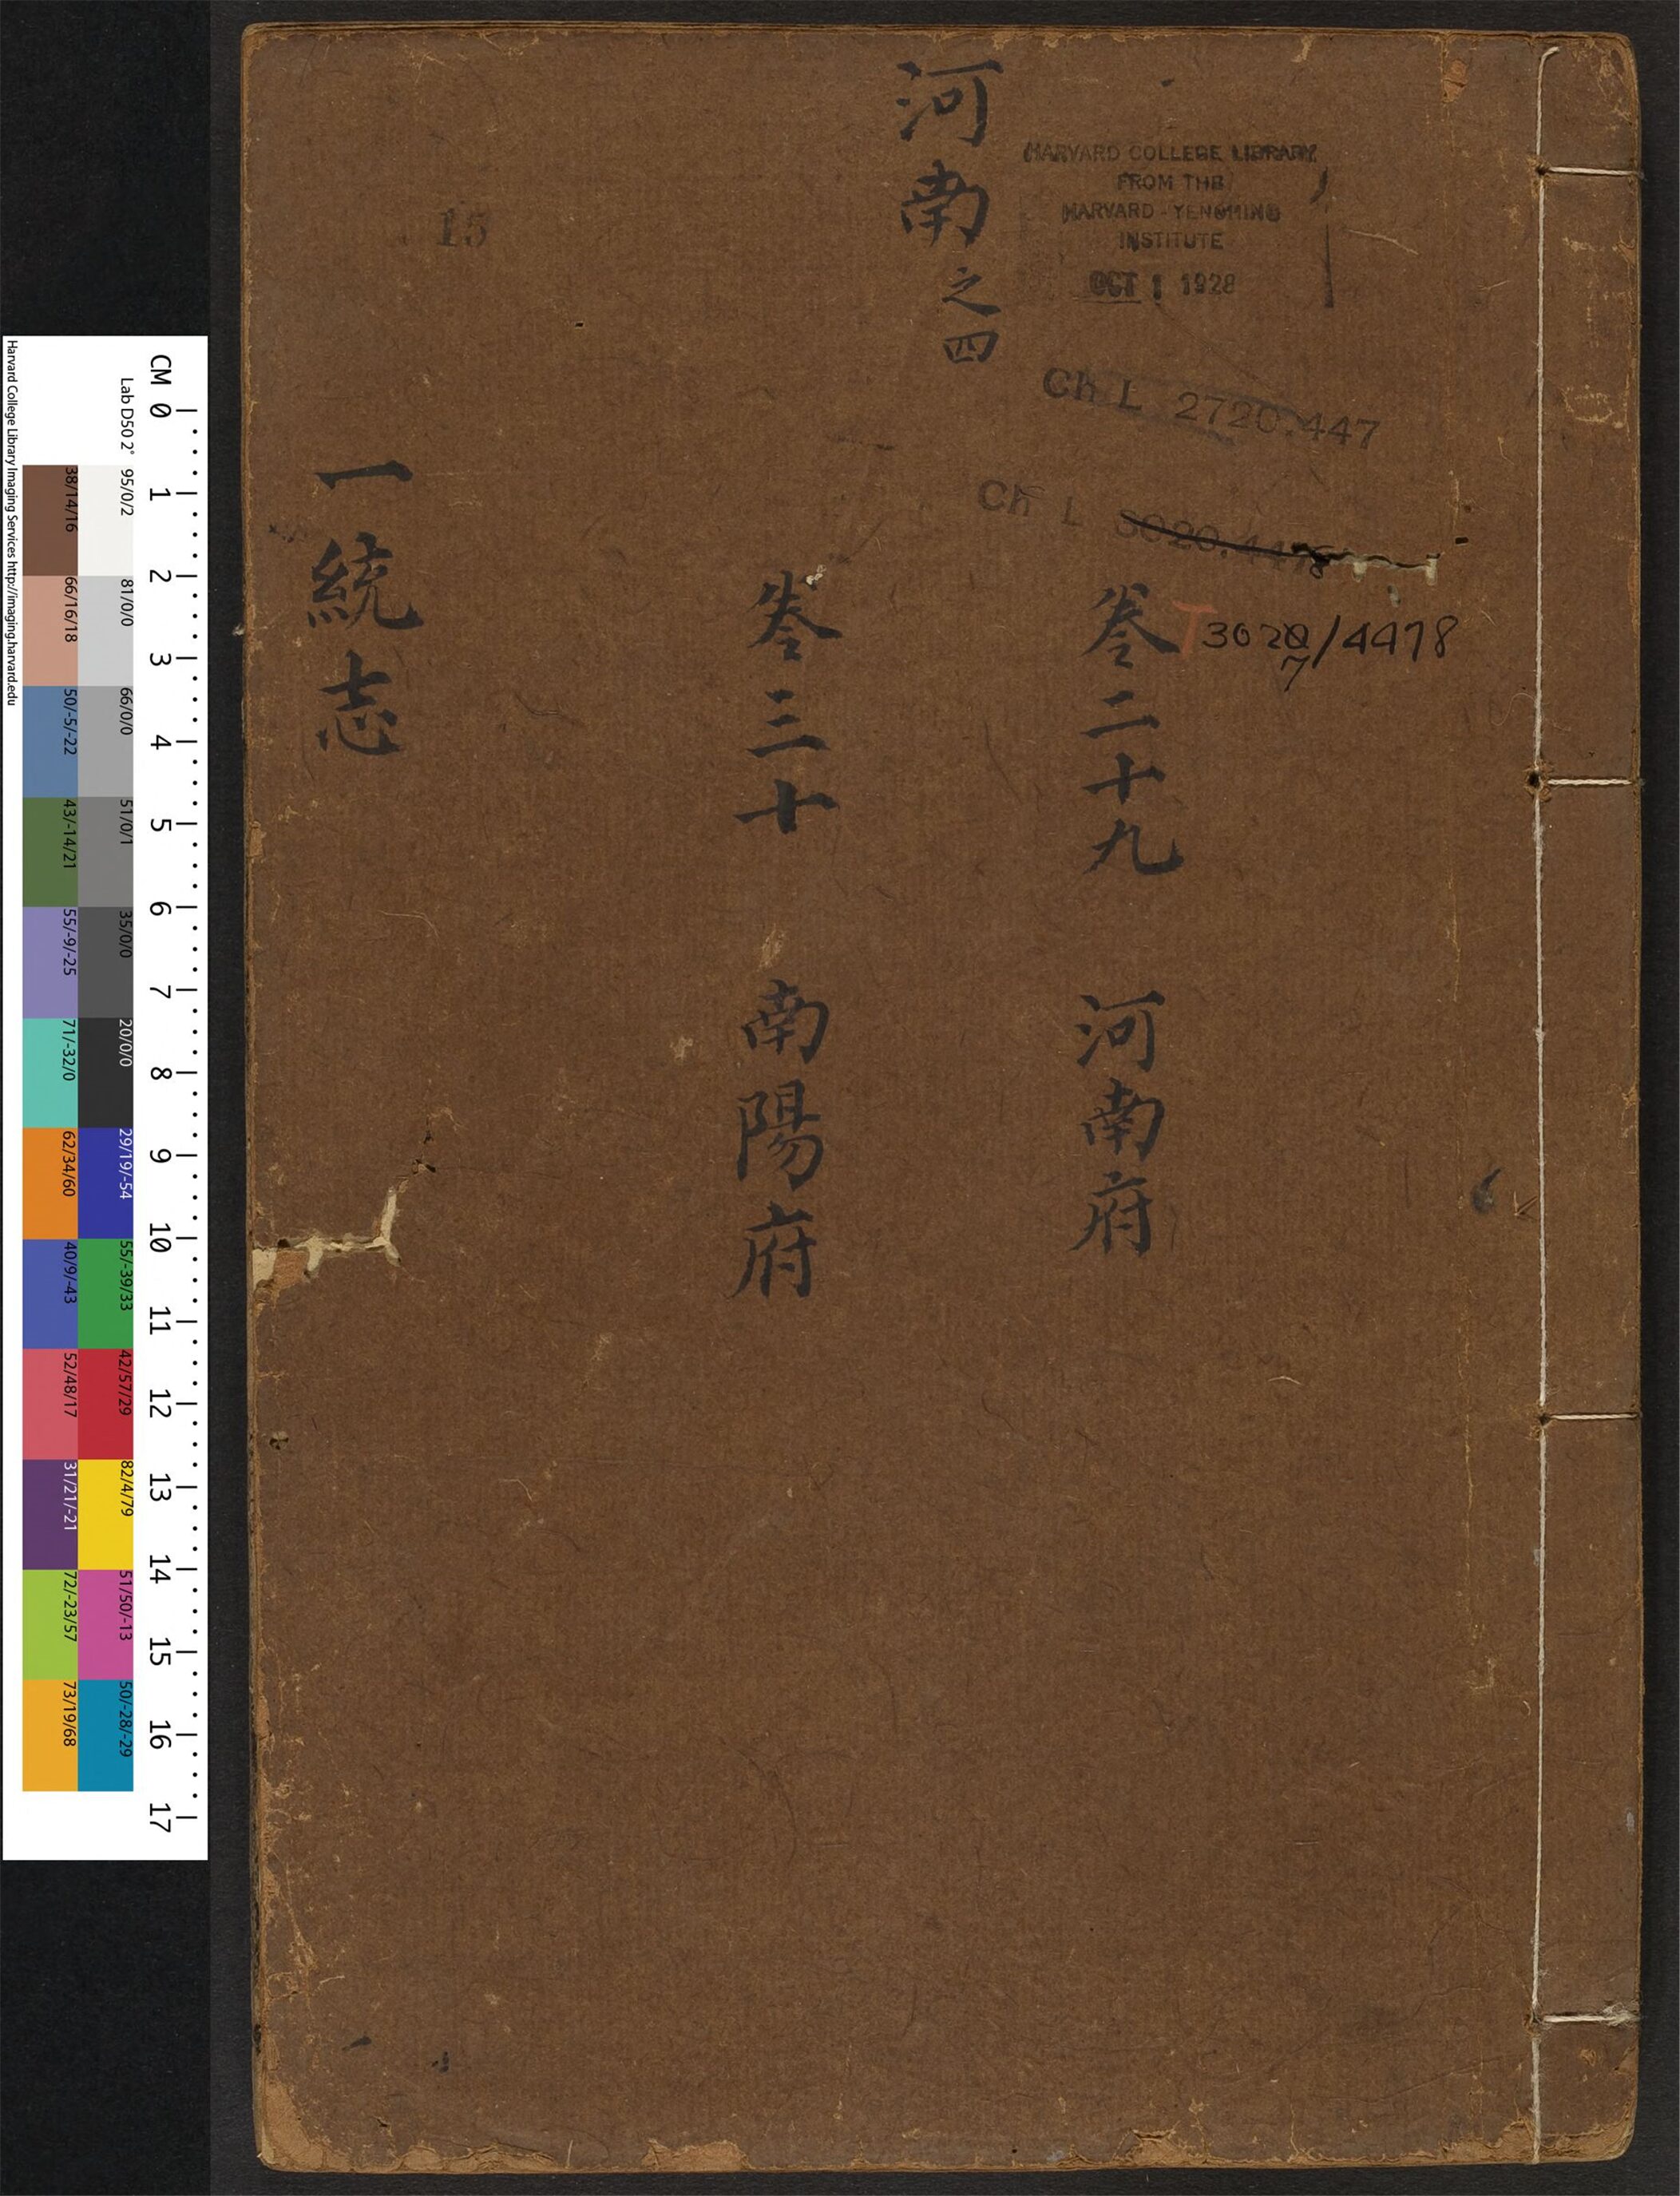 河南之四
HARVARD COLLEGE LIBRARY
FROM THE
HARVARD-YENCHING
INSTITUTE
OCT 1 1928
Ch L 2720.447
Ch L 3020.4478
T 3020/4478
7
15
卷二十九 河南府
卷三十 南陽府
一統志
CM 0 1 2 3 4 5 6 7 8 9 10 11 12 13 14 15 16 17
Lab D50 2° 95/0/2 81/0/0 66/0/0 51/0/1 35/0/0 20/0/0 29/19/-54 55/-39/33 42/57/29 82/4/79 51/50/-13 50/-28/-29
38/14/16 66/16/18 50/-5/-22 43/-14/21 55/-9/-25 71/-32/0 62/34/60 40/9/-43 52/48/17 31/21/-21 72/-23/57 73/19/68
Harvard College Library Imaging Services http://imaging.harvard.edu